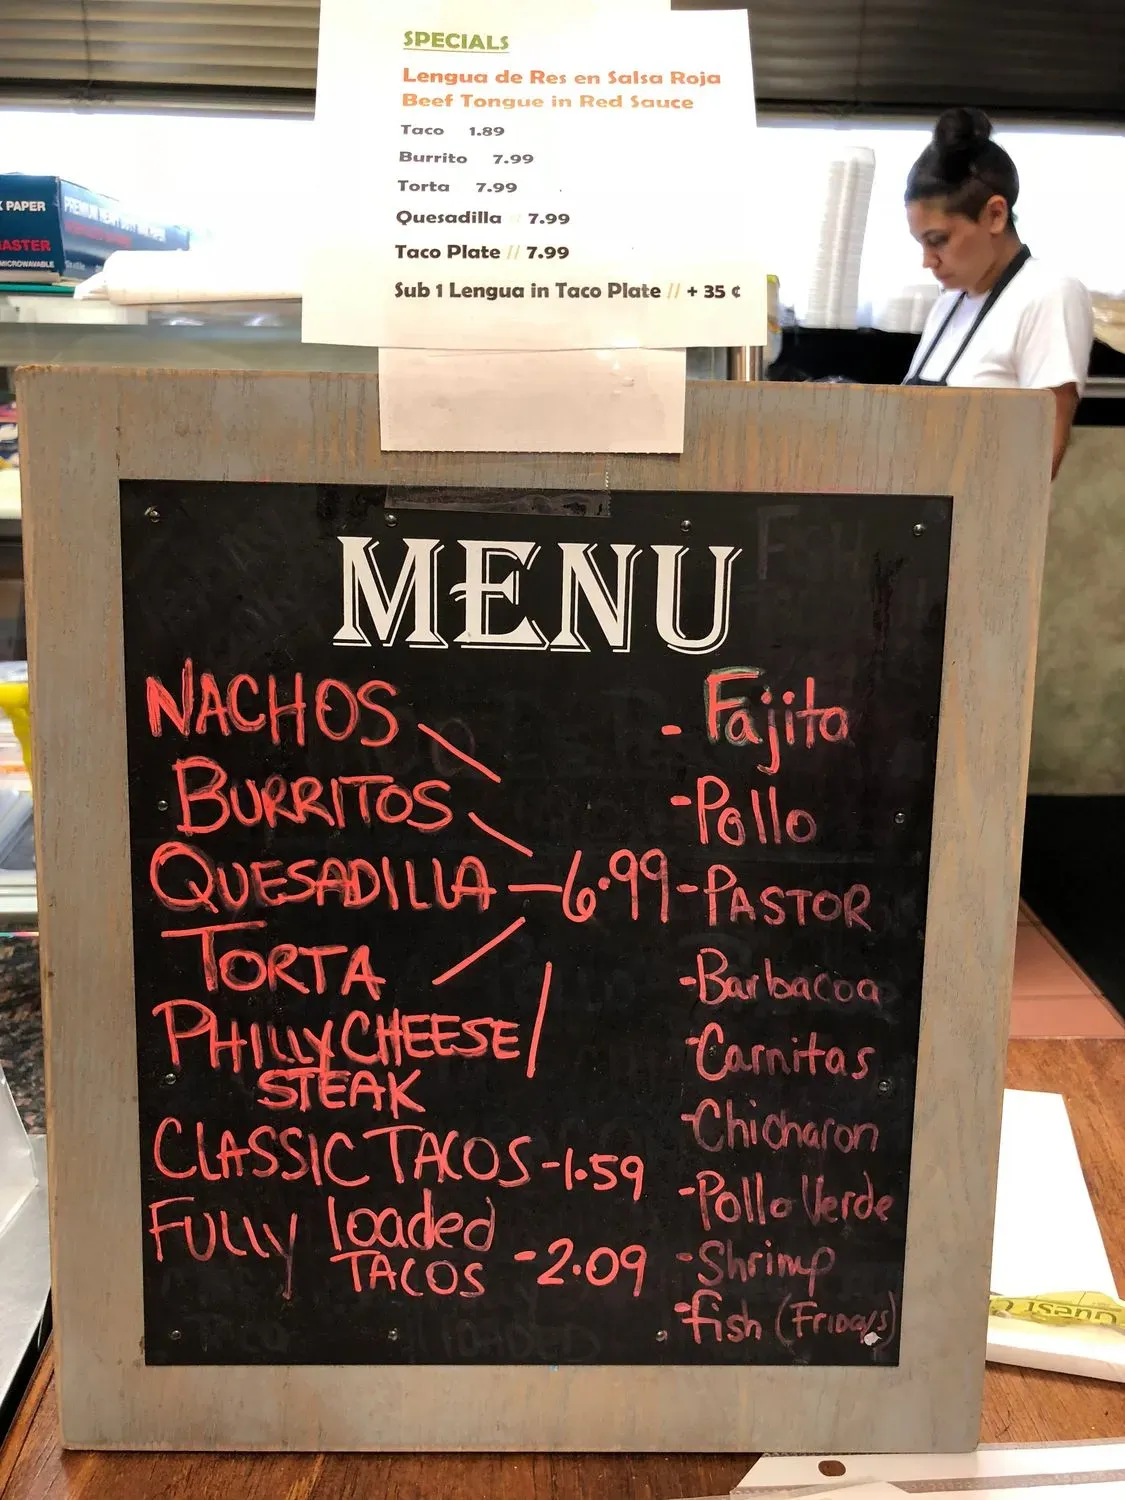 SPECIALS
Lengua de Res en Salsa Roja
Beef Tongue in Red Sauce
Taco 1.89
Burrito 7.99
Torta 7.99
Quesadilla // 7.99
Taco Plate // 7.99
Sub 1 Lengua in Taco Plate // + 35 ¢
PAPER
PREMIUM HEAVY
ASTER
MICROWAVABLE
MENU
NACHOS
BURRITOS
QUESADILLA — 6.99
TORTA
PHILLY CHEESE
STEAK
CLASSIC TACOS - 1.59
FULLY loaded
TACOS - 2.09
- Fajita
- Pollo
- PASTOR
- Barbacoa
- Carnitas
- Chicharon
- Pollo Verde
- Shrimp
- fish (FRIDAYS)
Guest